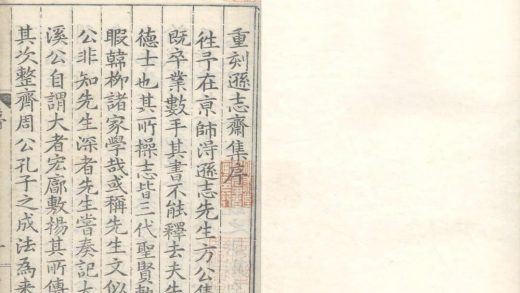 重刻遜志齋集序
徃予在京師淂遜志先生方公集
既卒業數手其書不能釋去夫先
德士也其所操志皆三代聖賢
暇韓柳諸家學哉或稱先生文似
公非知先生深者先生嘗奏記太
溪公自謂大者宏廓敷揚其所傳
其次整齊周公孔子之成法爲来
序